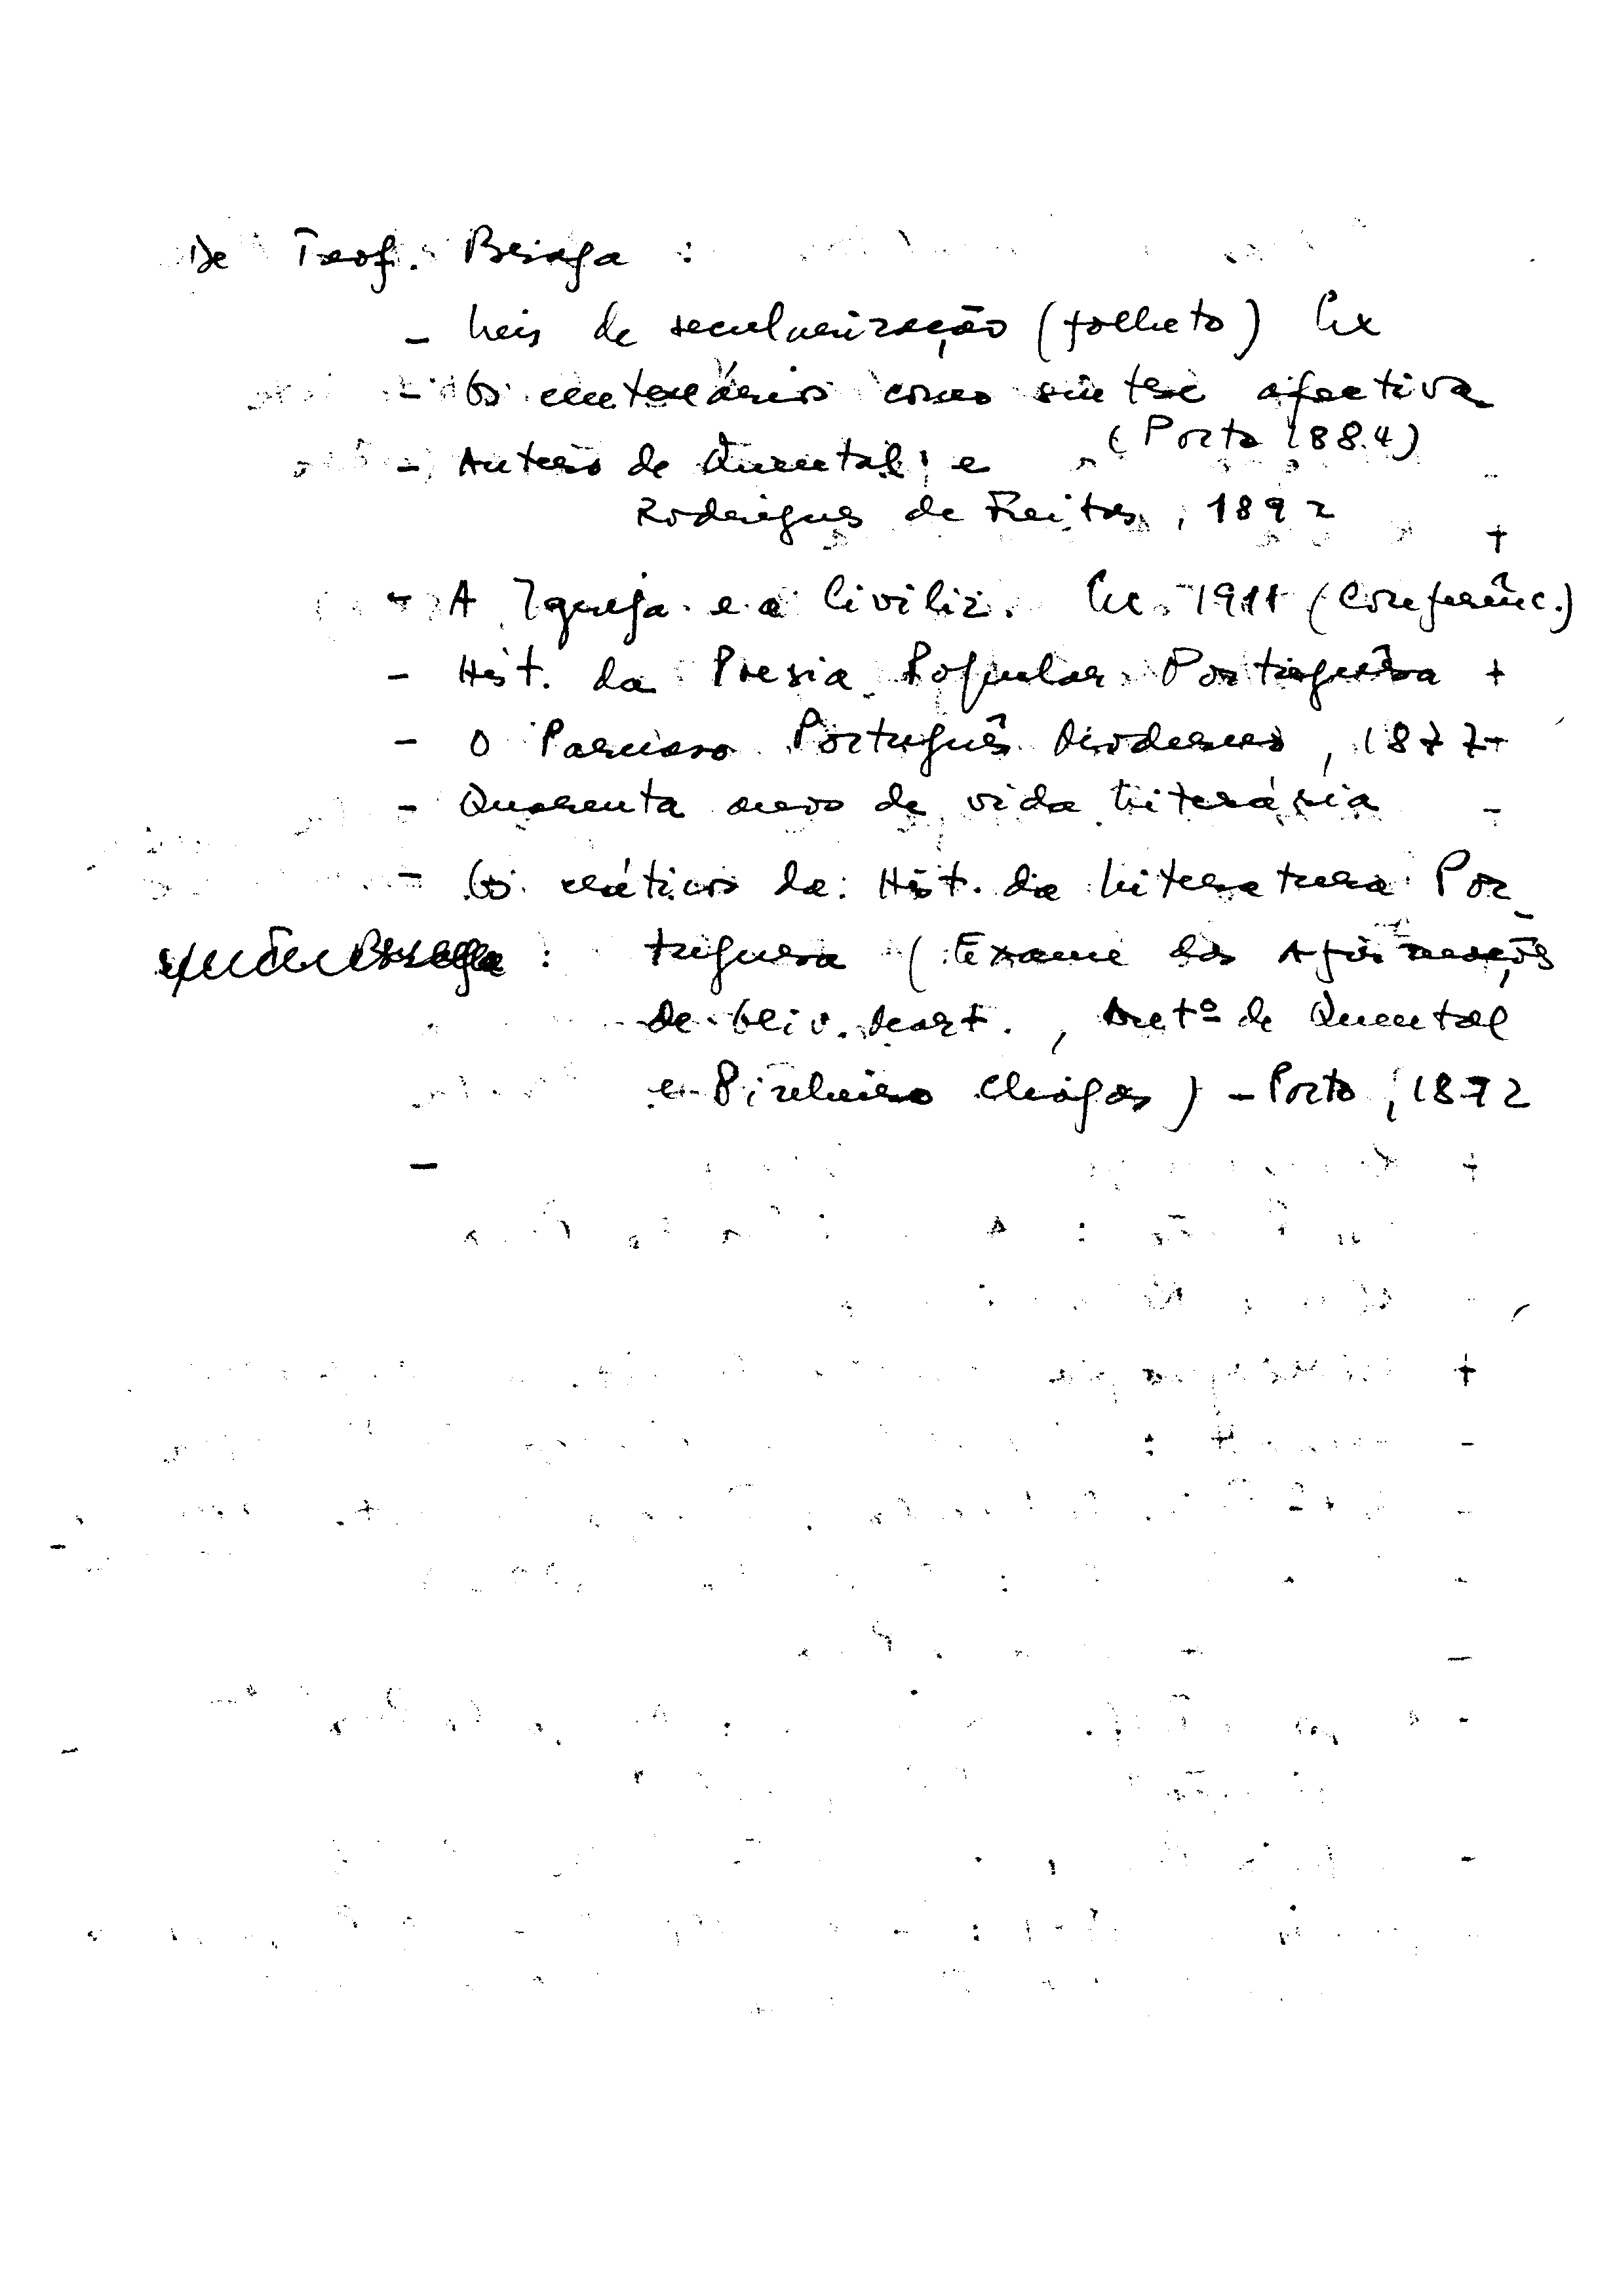 De Teof. Braga :
- Leis de secularização (folheto) Lx
- Os centenários como síntese afectiva
(Porto 1884)
- Antero de Quental e
Rodrigues de Freitas, 1892
- A Igreja e a Civiliz. Lx. 1911 (Conferênc.)
- Hist. da Poesia Popular Portuguesa
- O Parnaso Português Moderno, 1877
- Quarenta anos de vida literária
- Os críticos da Hist. da Literatura Por-
tuguesa (Exame das Afirmações
de Oliv. Mart., Antº de Quental
e Pinheiro Chagas) - Porto, 1872
-